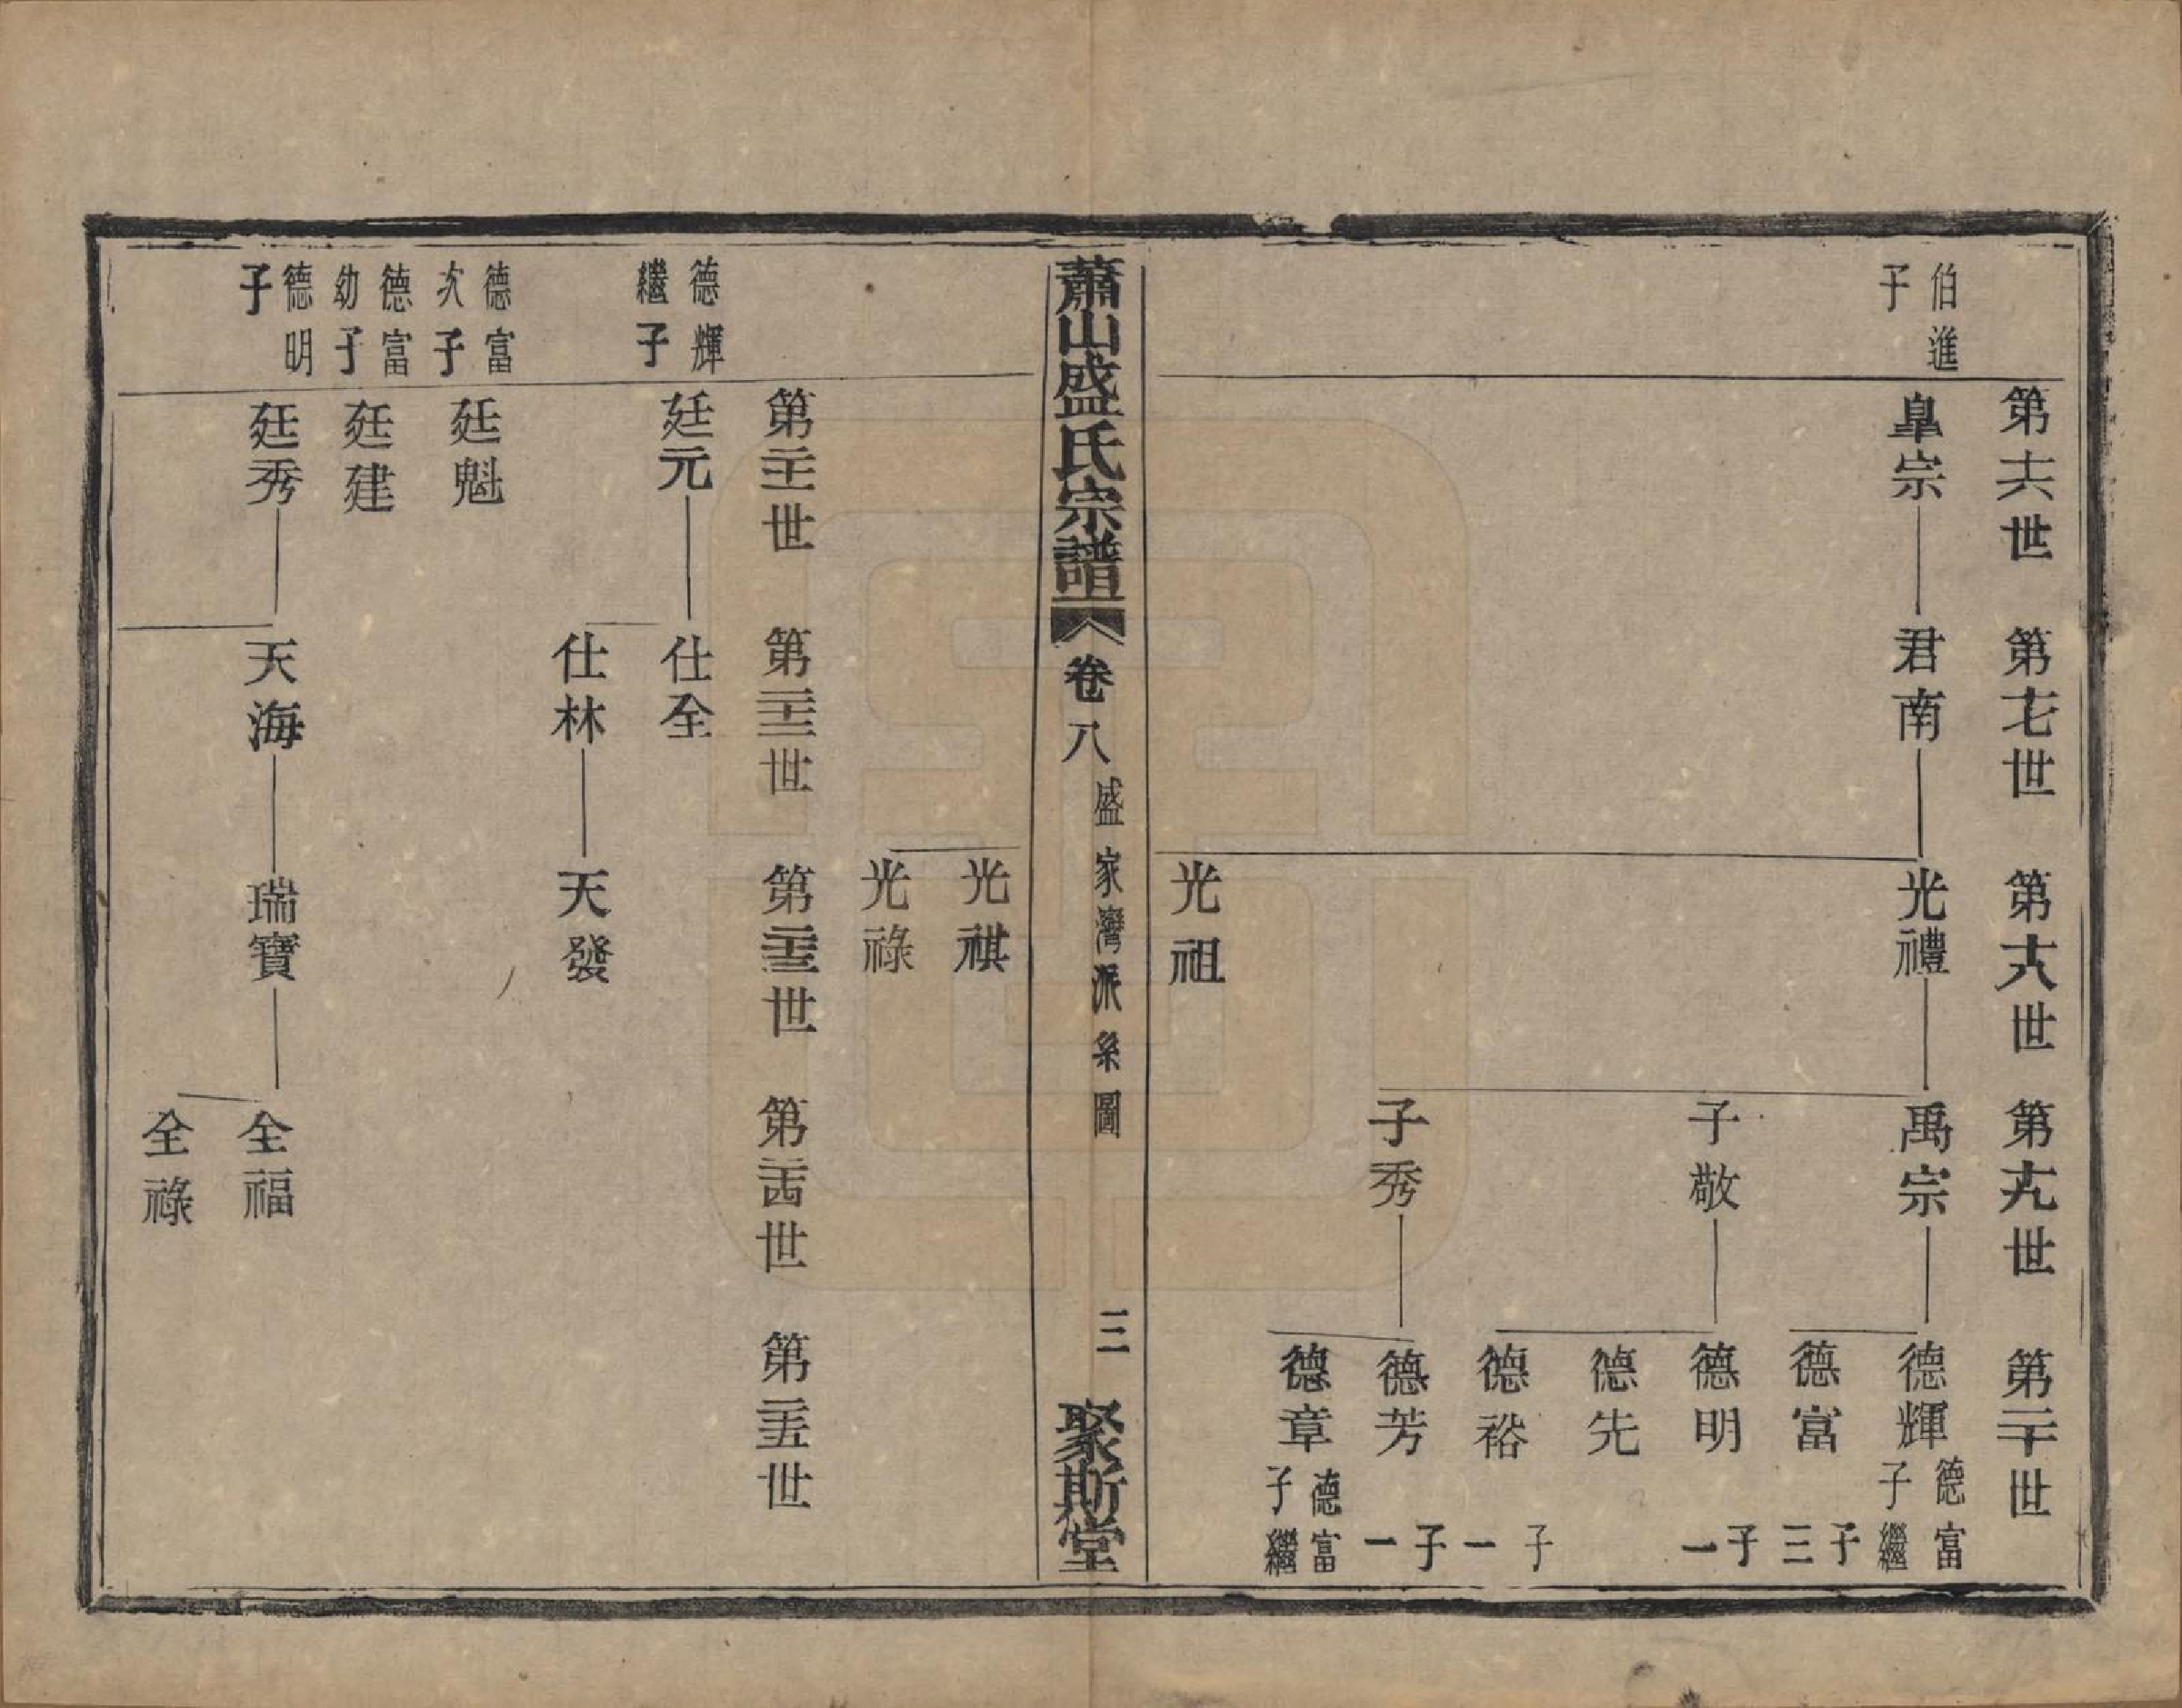 第十六世
第十七世
第十八世
第十九世
第二十世
伯進
子
皐宗
君南
光禮
禹宗
德輝
德富
子繼
德富
子三
子敬
德明
子一
德先
德裕
子一
子秀
德芳
子一
德章
德富
子繼
光祖
蕭山盛氏宗譜
卷八
盛家灣派系圖
三
聚斯堂
光祺
光祿
第二十一世
第二十二世
第二十三世
第二十四世
第二十五世
德輝
繼子
廷元
仕全
仕林
天發
德富
次子
廷魁
德富
幼子
廷建
德明
子
廷秀
天海
瑞寶
全福
全祿